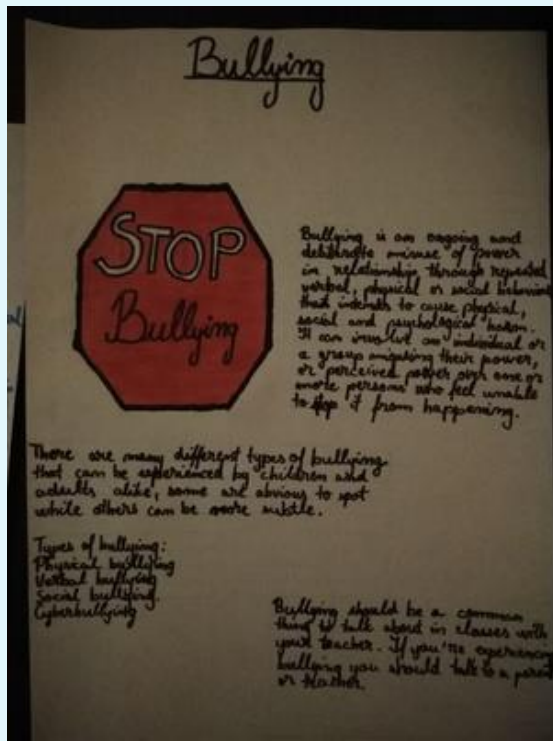 Bullying
STOP
Bullying
Bullying is an ongoing and
deliberate misuse of power
in relationship through repeated
verbal, physical or social behavior
that intends to cause physical,
social and psychological harm.
It can involve an individual or
a group misusing their power,
or perceived power over one or
more persons who feel unable
to stop it from happening.
There are many different types of bullying
that can be experienced by children and
adults alike, some are obvious to spot
while others can be more subtle.
Types of bullying:
Physical bullying
Verbal bullying
Social bullying.
Cyberbullying
Bullying should be a common
thing to talk about in classes with
your teacher. If you're experiencing
bullying you should talk to a parent
or teacher.